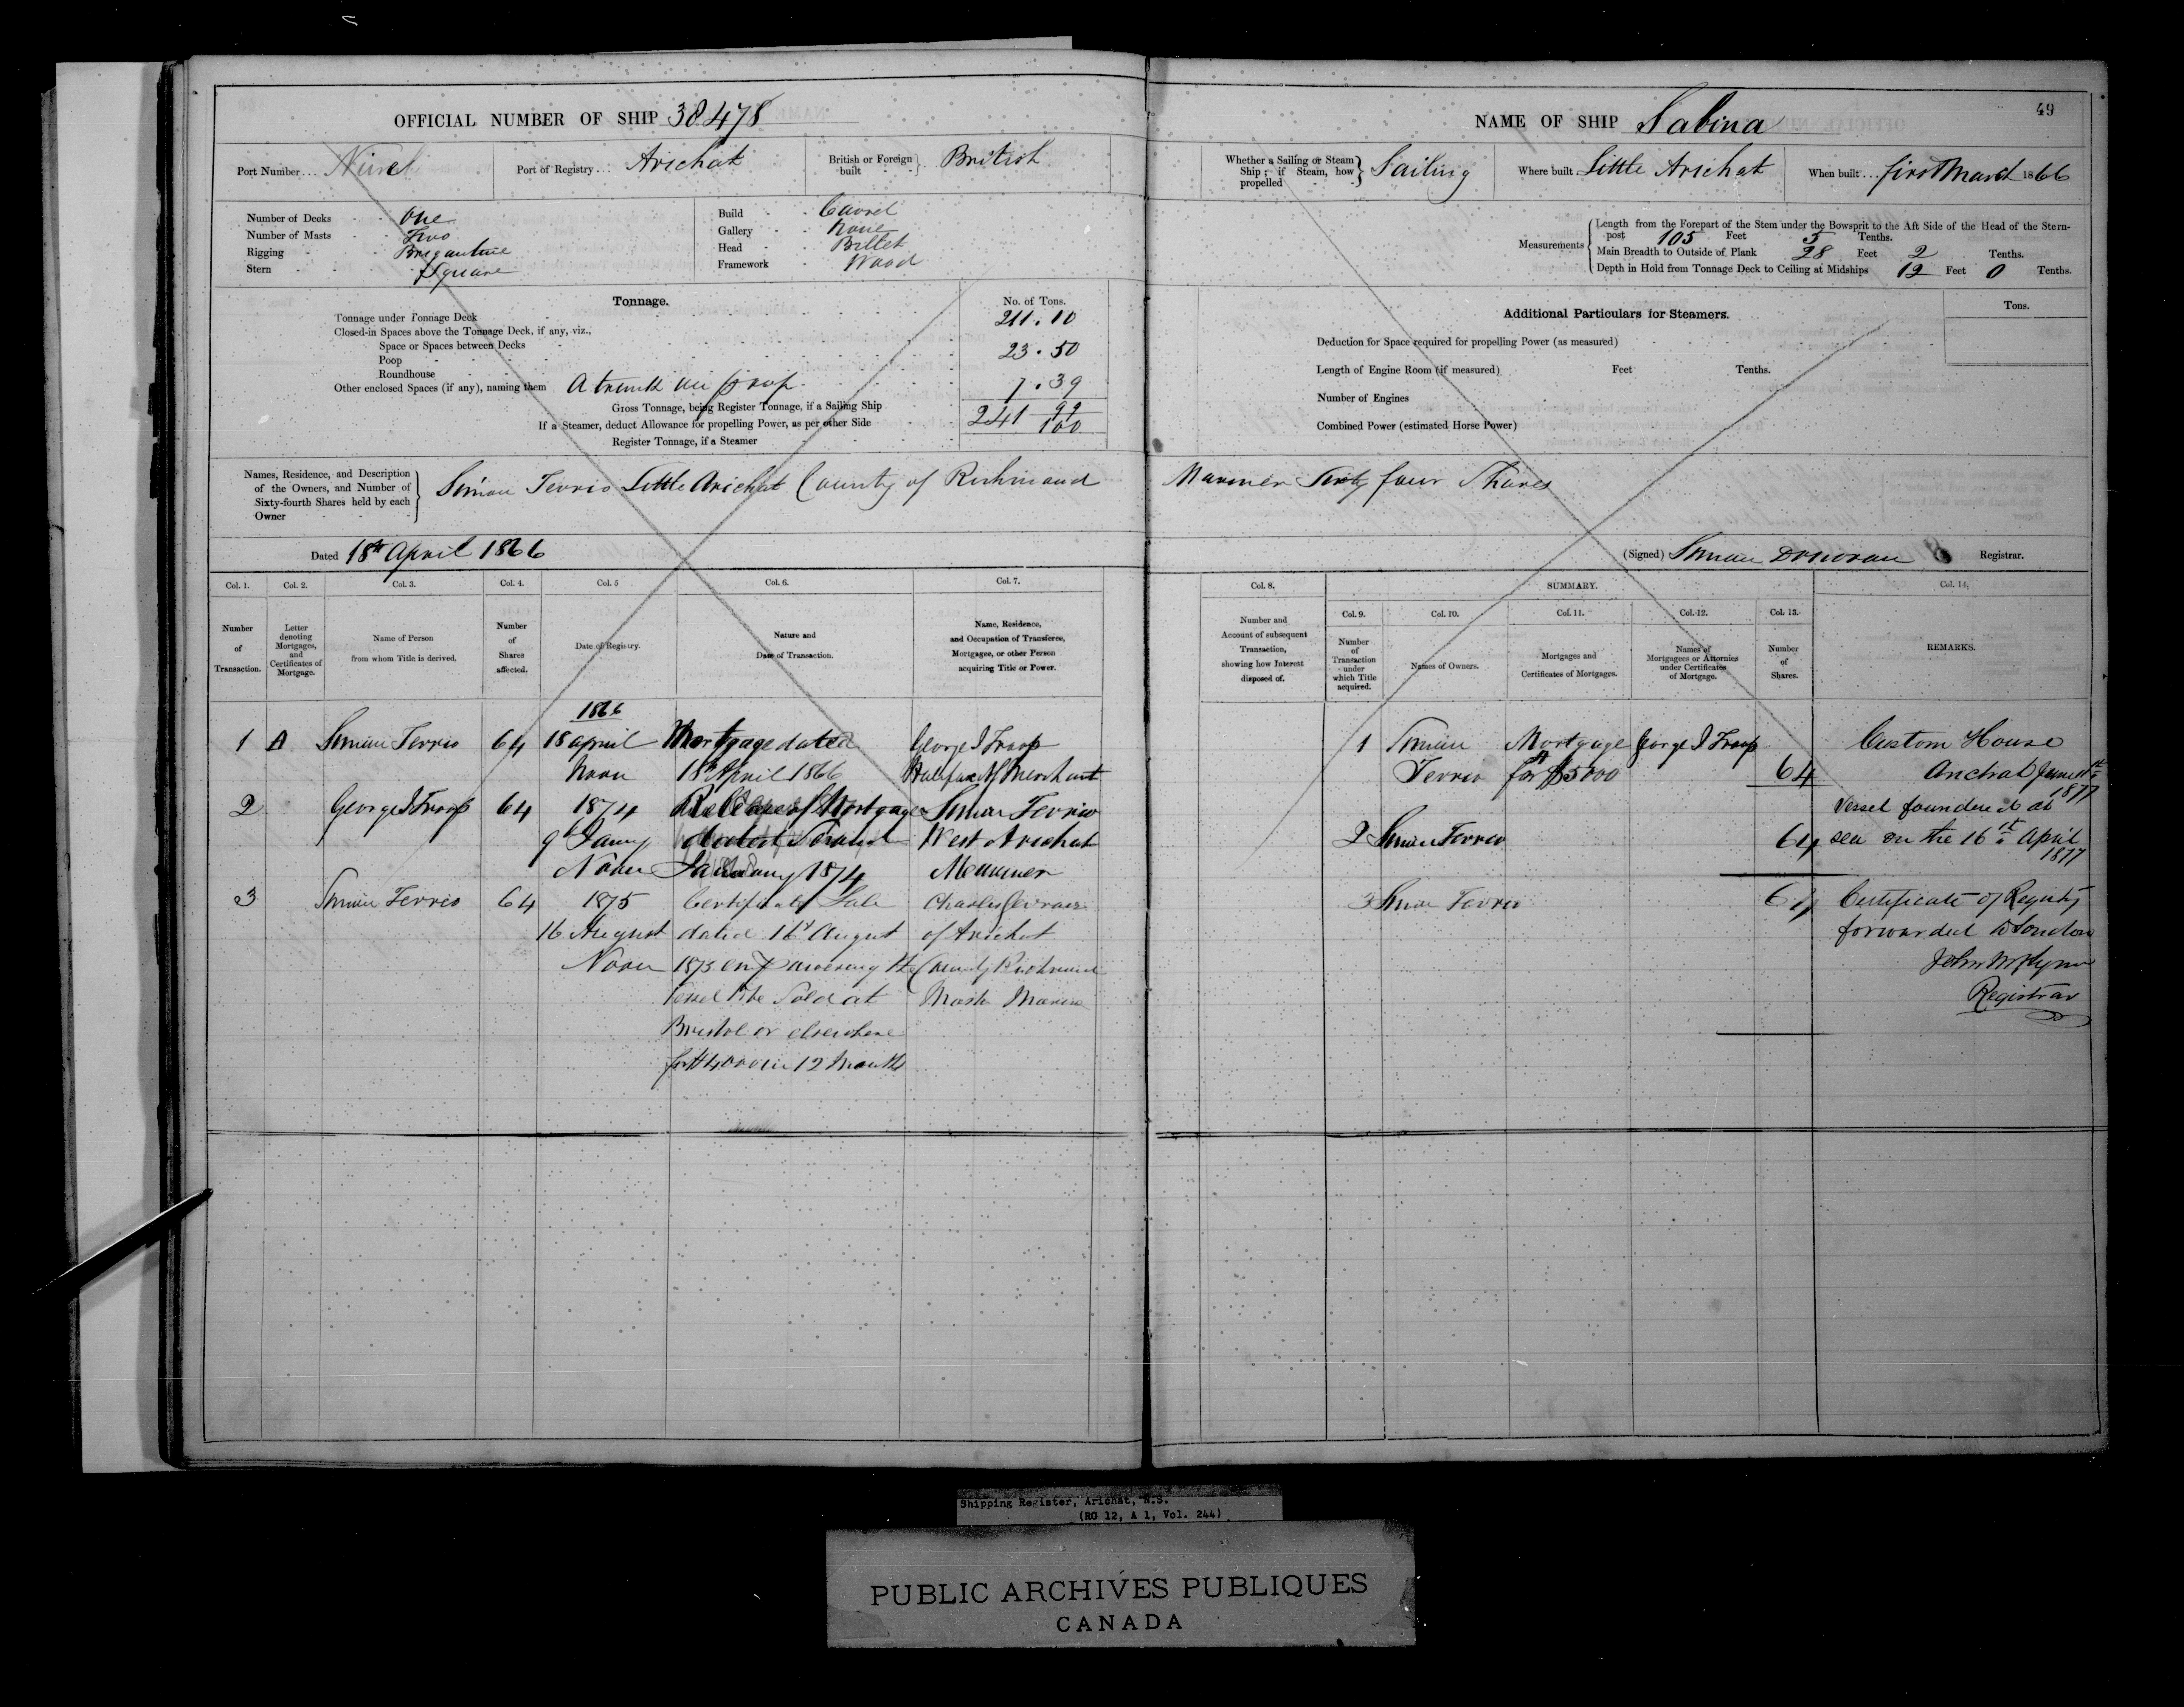 OFFICIAL NUMBER OF SHIP 38478
Port Number
Port of Registry Arichat
British or Foreign built British
Number of Decks One
Number of Masts Two
Rigging Brigantine
Stern Square
Build Carvel
Gallery None
Head Billet
Framework Wood
Tonnage.
No. of Tons.
Tonnage under Tonnage Deck 211.10
Closed-in Spaces above the Tonnage Deck, if any, viz.,
Space or Spaces between Decks
Poop 23.50
Roundhouse
Other enclosed Spaces (if any), naming them A trunk on poop 7.39
Gross Tonnage, being Register Tonnage, if a Sailing Ship 241 99/100
If a Steamer, deduct Allowance for propelling Power, as per other Side
Register Tonnage, if a Steamer
Names, Residence, and Description of the Owners, and Number of Sixty-fourth Shares held by each Owner
Simon Terrio Little Arichat County of Richmond
Dated 18th April 1866
Col. 1. Col. 2. Col. 3. Col. 4. Col. 5 Col. 6. Col. 7.
Number of Transaction.
Letter denoting Mortgages, and Certificates of Mortgage.
Name of Person from whom Title is derived.
Number of Shares affected.
Date of Registry.
Nature and Date of Transaction.
Name, Residence, and Occupation of Transferee, Mortgagee, or other Person acquiring Title or Power.
1866
1 A Simon Terrio 64 18 April Mortgage dated George I Troop
Noon 18th April 1866 Halifax NS Merchant
2 George I Troop 64 1874 Release of Mortgage Simon Terrio
9th Jany dated West Arichat
Noon January 1874 Mariner
3 Simon Terrio 64 1875 Certificate of Sale Charles
16 August dated 16th August of Arichat
Noon 1875 empowering the County Richmond
Vessel to be Sold at Master Mariner
Bristol or elsewhere
for $4000 in 12 Months
NAME OF SHIP Sabina
49
Whether a Sailing or Steam Ship; if Steam, how propelled Sailing
Where built Little Arichat
When built first March 1866
Measurements
Length from the Forepart of the Stem under the Bowsprit to the Aft Side of the Head of the Stern-
post 105 Feet 5 Tenths.
Main Breadth to Outside of Plank 28 Feet 2 Tenths.
Depth in Hold from Tonnage Deck to Ceiling at Midships 12 Feet 0 Tenths.
Additional Particulars for Steamers.
Tons.
Deduction for Space required for propelling Power (as measured)
Length of Engine Room (if measured) Feet Tenths.
Number of Engines
Combined Power (estimated Horse Power)
Mariner Sixty four Shares
(Signed) Simon Donovan Registrar.
Col. 8. SUMMARY. Col. 14.
Col. 9. Col. 10. Col. 11. Col. 12. Col. 13.
Number and Account of subsequent Transaction, showing how Interest disposed of.
Number of Transaction under which Title acquired.
Names of Owners.
Mortgages and Certificates of Mortgages.
Names of Mortgagees or Attornies under Certificates of Mortgage.
Number of Shares.
REMARKS.
1 Simon Mortgage A George I Troop
Terrio for $5000 64
2 Simon Terrio 64
3 Simon Terrio 64
Custom House
Arichat June
1877
Vessel foundered at
sea on the 16th April
1877
Certificate of Registry
forwarded to London
Registrar
Shipping Register, Arichat, N.S.
(RG 12, A 1, Vol. 244)
PUBLIC ARCHIVES PUBLIQUES
CANADA